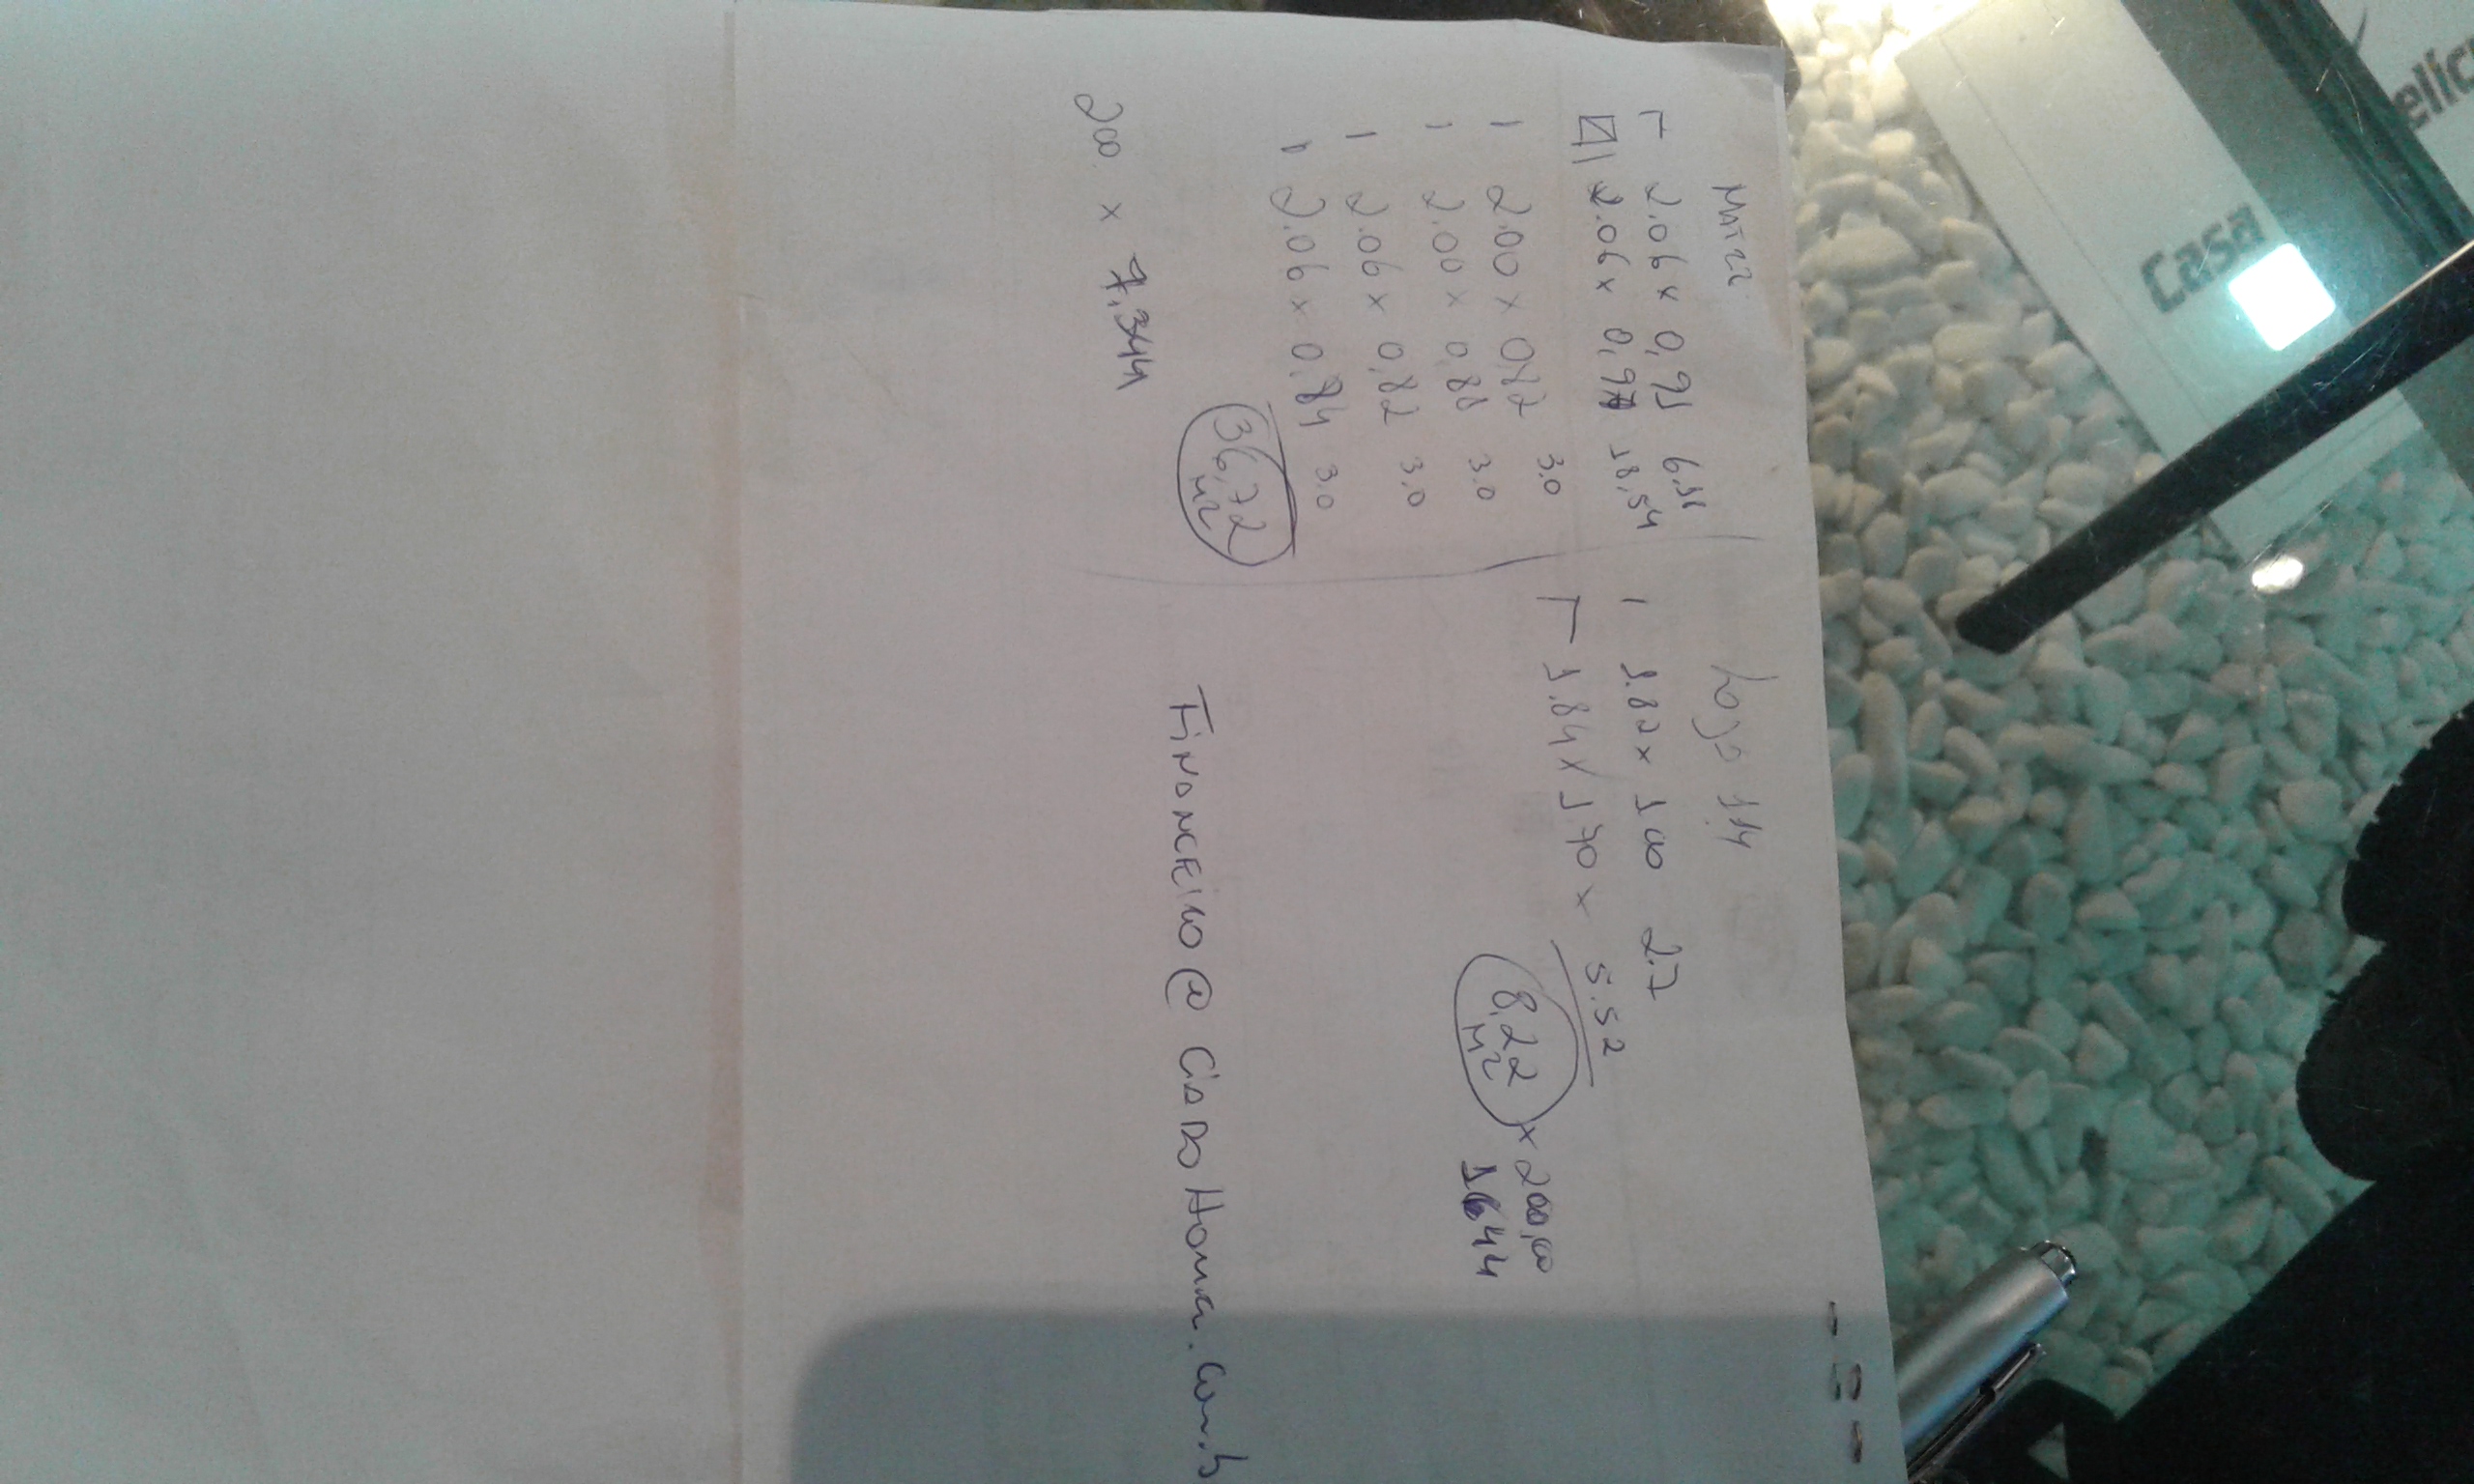 MATRIZ
Γ 2.06 x 0,95 6,18
2.06 x 0,97 18,54
1 2.00 x 0,82 3.0
1 2.00 x 0,88 3.0
1 2.06 x 0,82 3.0
1 2.06 x 0,84 3.0
36,72
M2
200 x 7,344
Loja 14
1 1.82 x 100 2.7
Γ 1.84 x 1.70 x 5.52
8,22 x 200,00
M2
1644
FINANCEIRO@
Casa